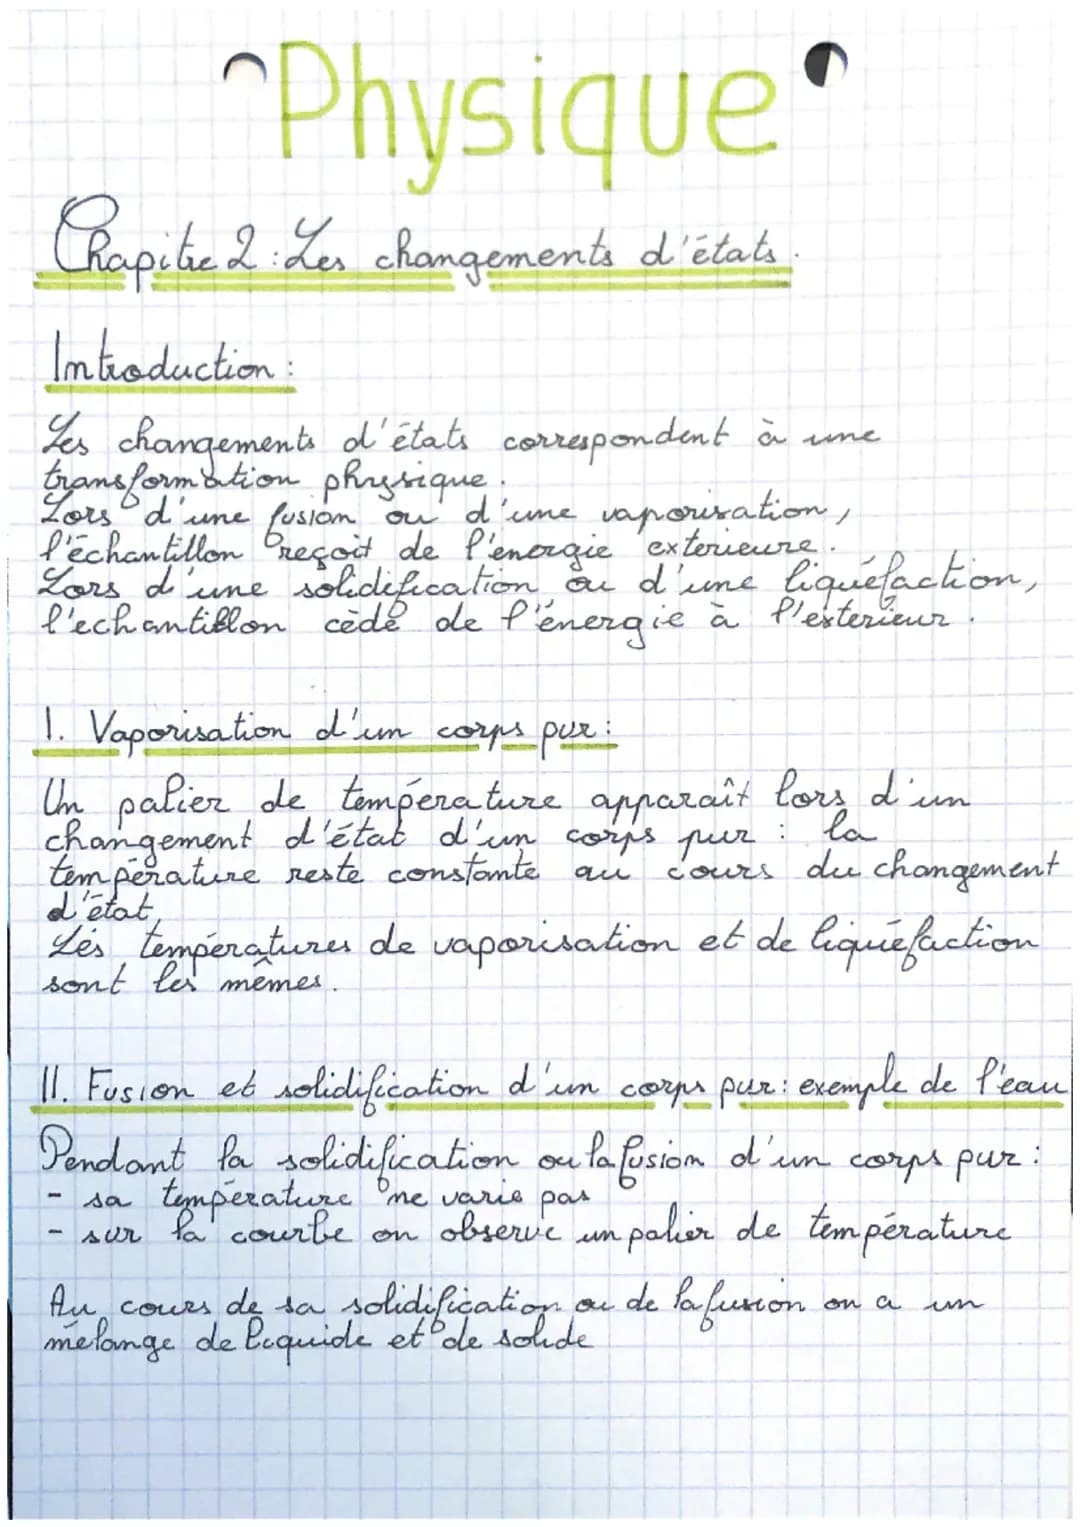 Physique
Chapitre 2 : Les changements d'états.
Introduction :
Les changements d'états correspondent à une
transformation physique.
Lors d'une fusion ou d'une vaporisation,
l'échantillon reçoit de l'energie exterieure.
Lors d'une solidification ou d'une liquéfaction,
l'echantillon cède de l'énergie à l'exterieur.
I. Vaporisation d'un corps pur :
Un palier de température apparaît lors d'un
changement d'état d'un corps pur : la
température reste constante au cours du changement
d'état,
Les températures de vaporisation et de liquéfaction
sont les mêmes.
II. Fusion et solidification d'un corps pur : exemple de l'eau
Pendant la solidification ou la fusion d'un corps pur :
- sa température ne varie pas
- sur la courbe on observe un palier de température
Au cours de sa solidification ou de la fusion on a un
mélange de liquide et de solide